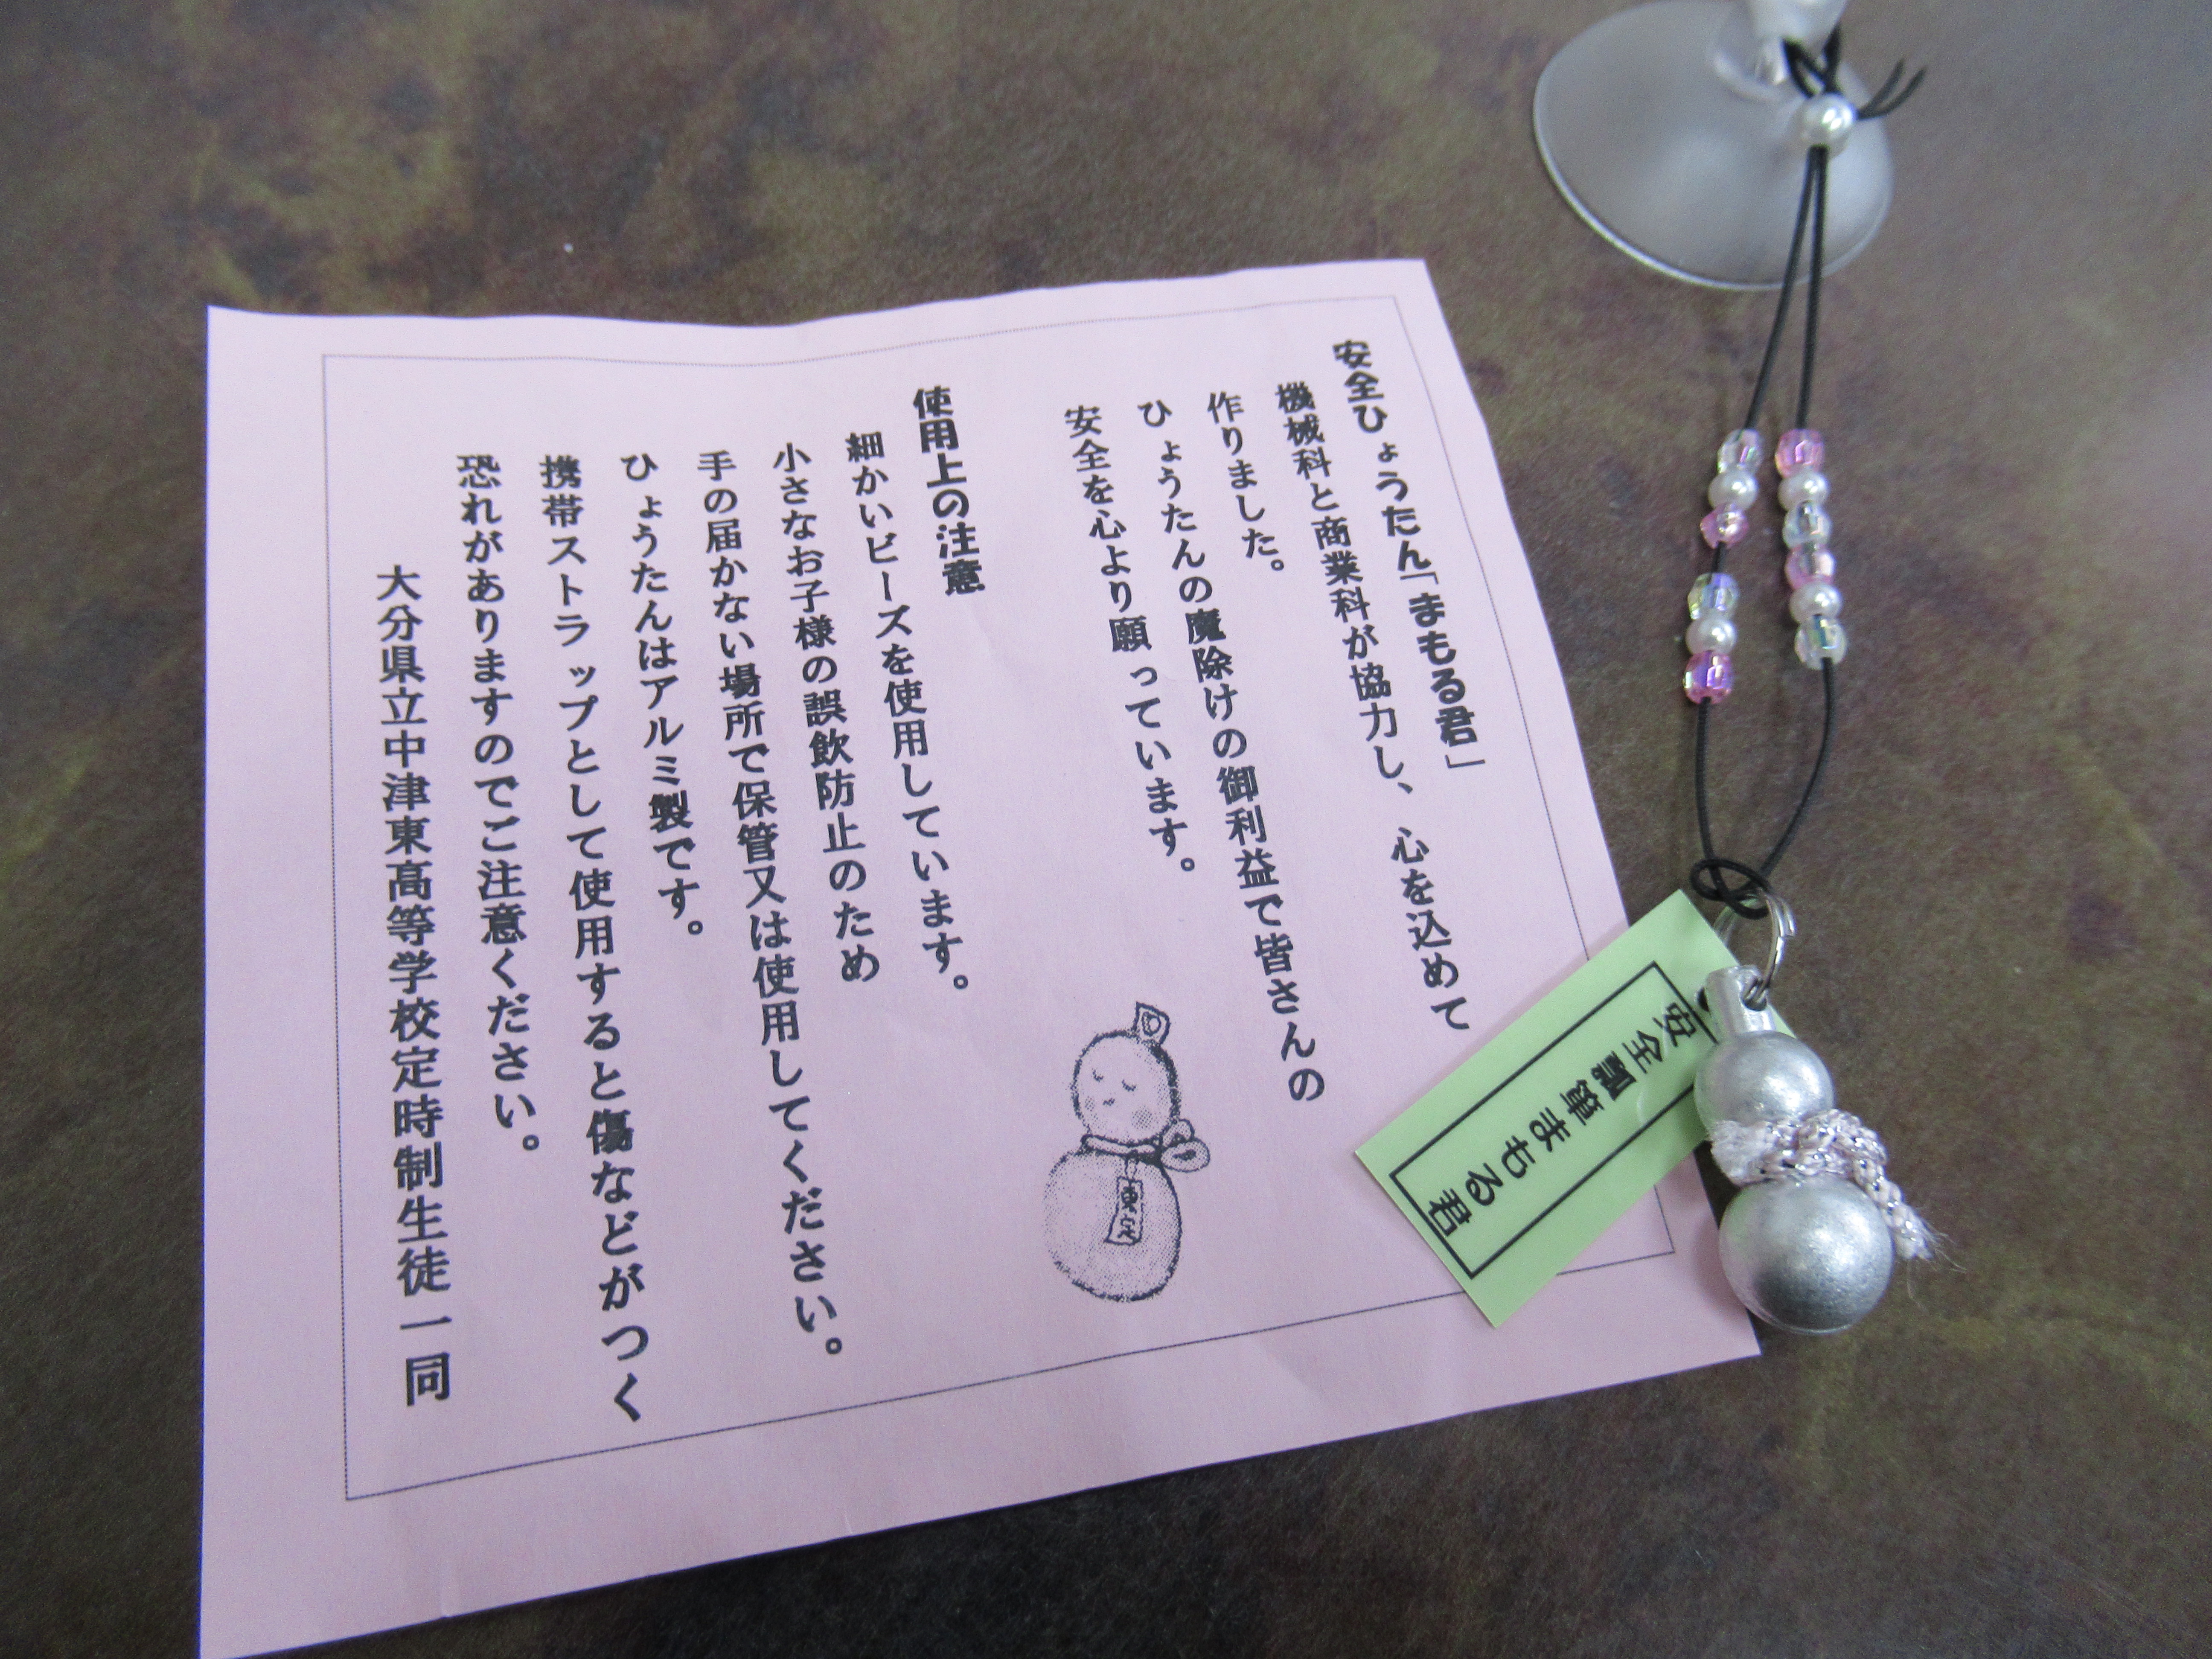 安全ひょうたん「まもる君」
機械科と商業科が協力し、心を込めて
作りました。
ひょうたんの魔除けの御利益で皆さんの
安全を心より願っています。
使用上の注意
細かいビーズを使用しています。
小さなお子様の誤飲防止のため
手の届かない場所で保管又は使用してください。
ひょうたんはアルミ製です。
携帯ストラップとして使用すると傷などがつく
恐れがありますのでご注意ください。
大分県立中津東高等学校定時制生徒一同
東定
安全瓢箪まもる君